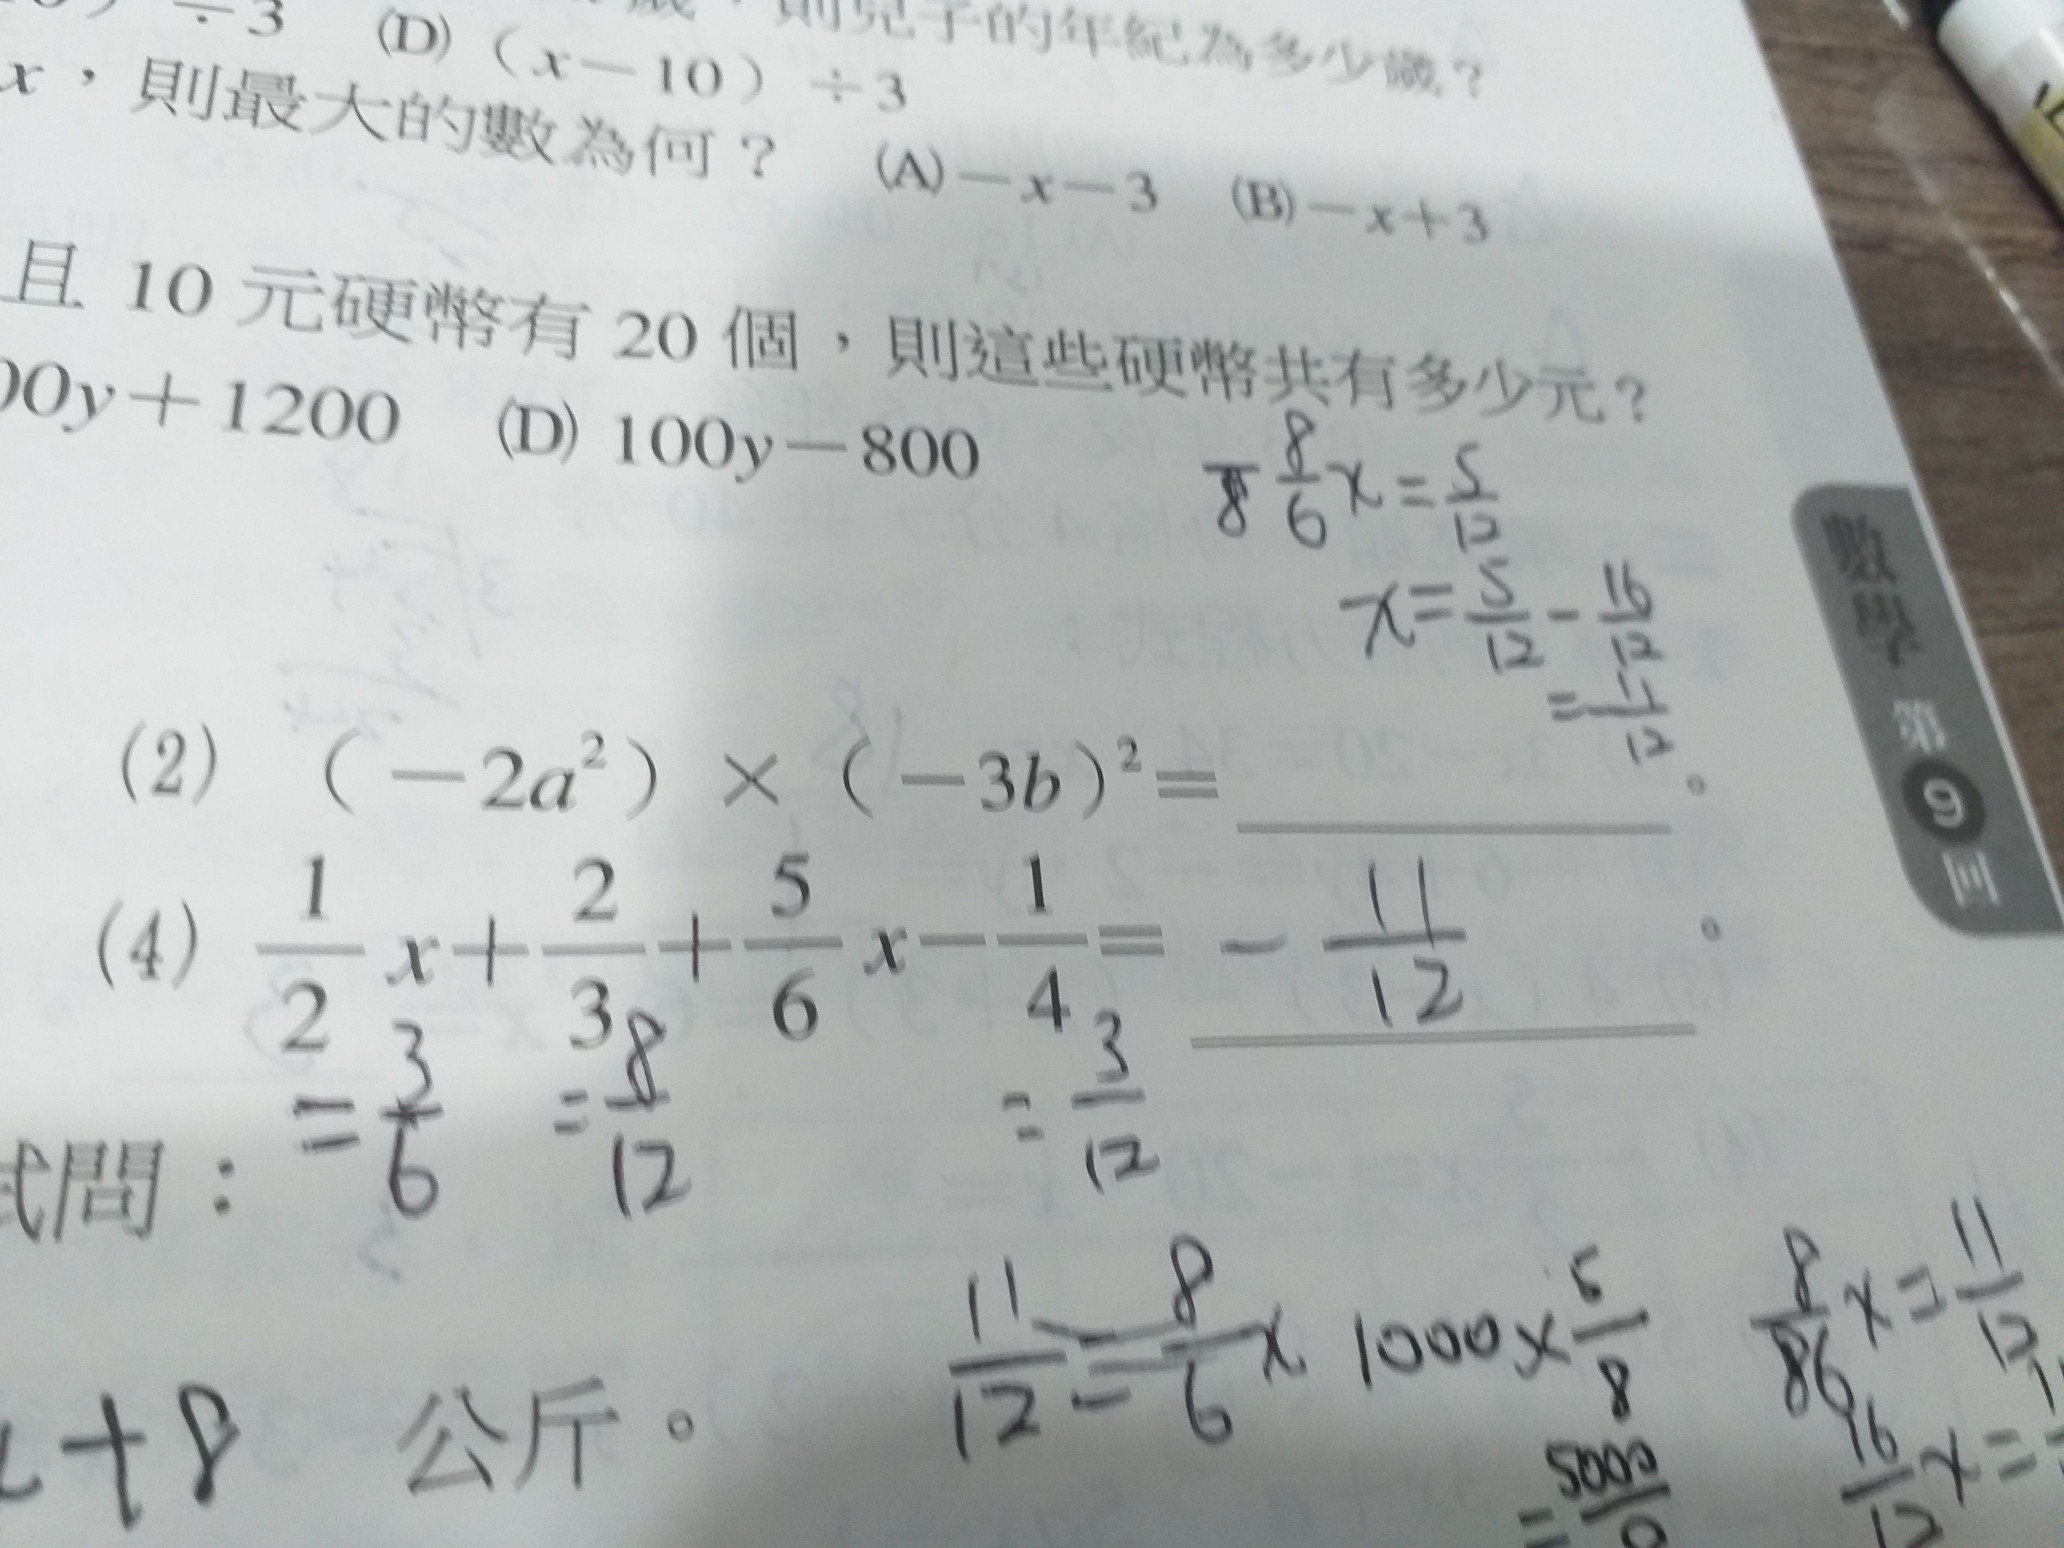 ÷3 (D) (x－10) ÷3
則兒子的年紀為多少歲？
x，則最大的數為何？ (A)－x－3 (B)－x＋3
且 10 元硬幣有 20 個，則這些硬幣共有多少元？
00y＋1200 (D) 100y－800
8/6 x = 5/12
x = 5/12 - 16/12
= 11/12
(2) (－2a²) × (－3b)²＝ 。
(4) 1/2 x＋2/3＋5/6 x－1/4＝ - 11/12 。
= 3/6 = 8/12 = 3/12
試問：
11/12 = 8/6 x 1000×5/8 8/86 x = 11/12
+8 公斤。
= 5000 16/12 x =
數學 第9回